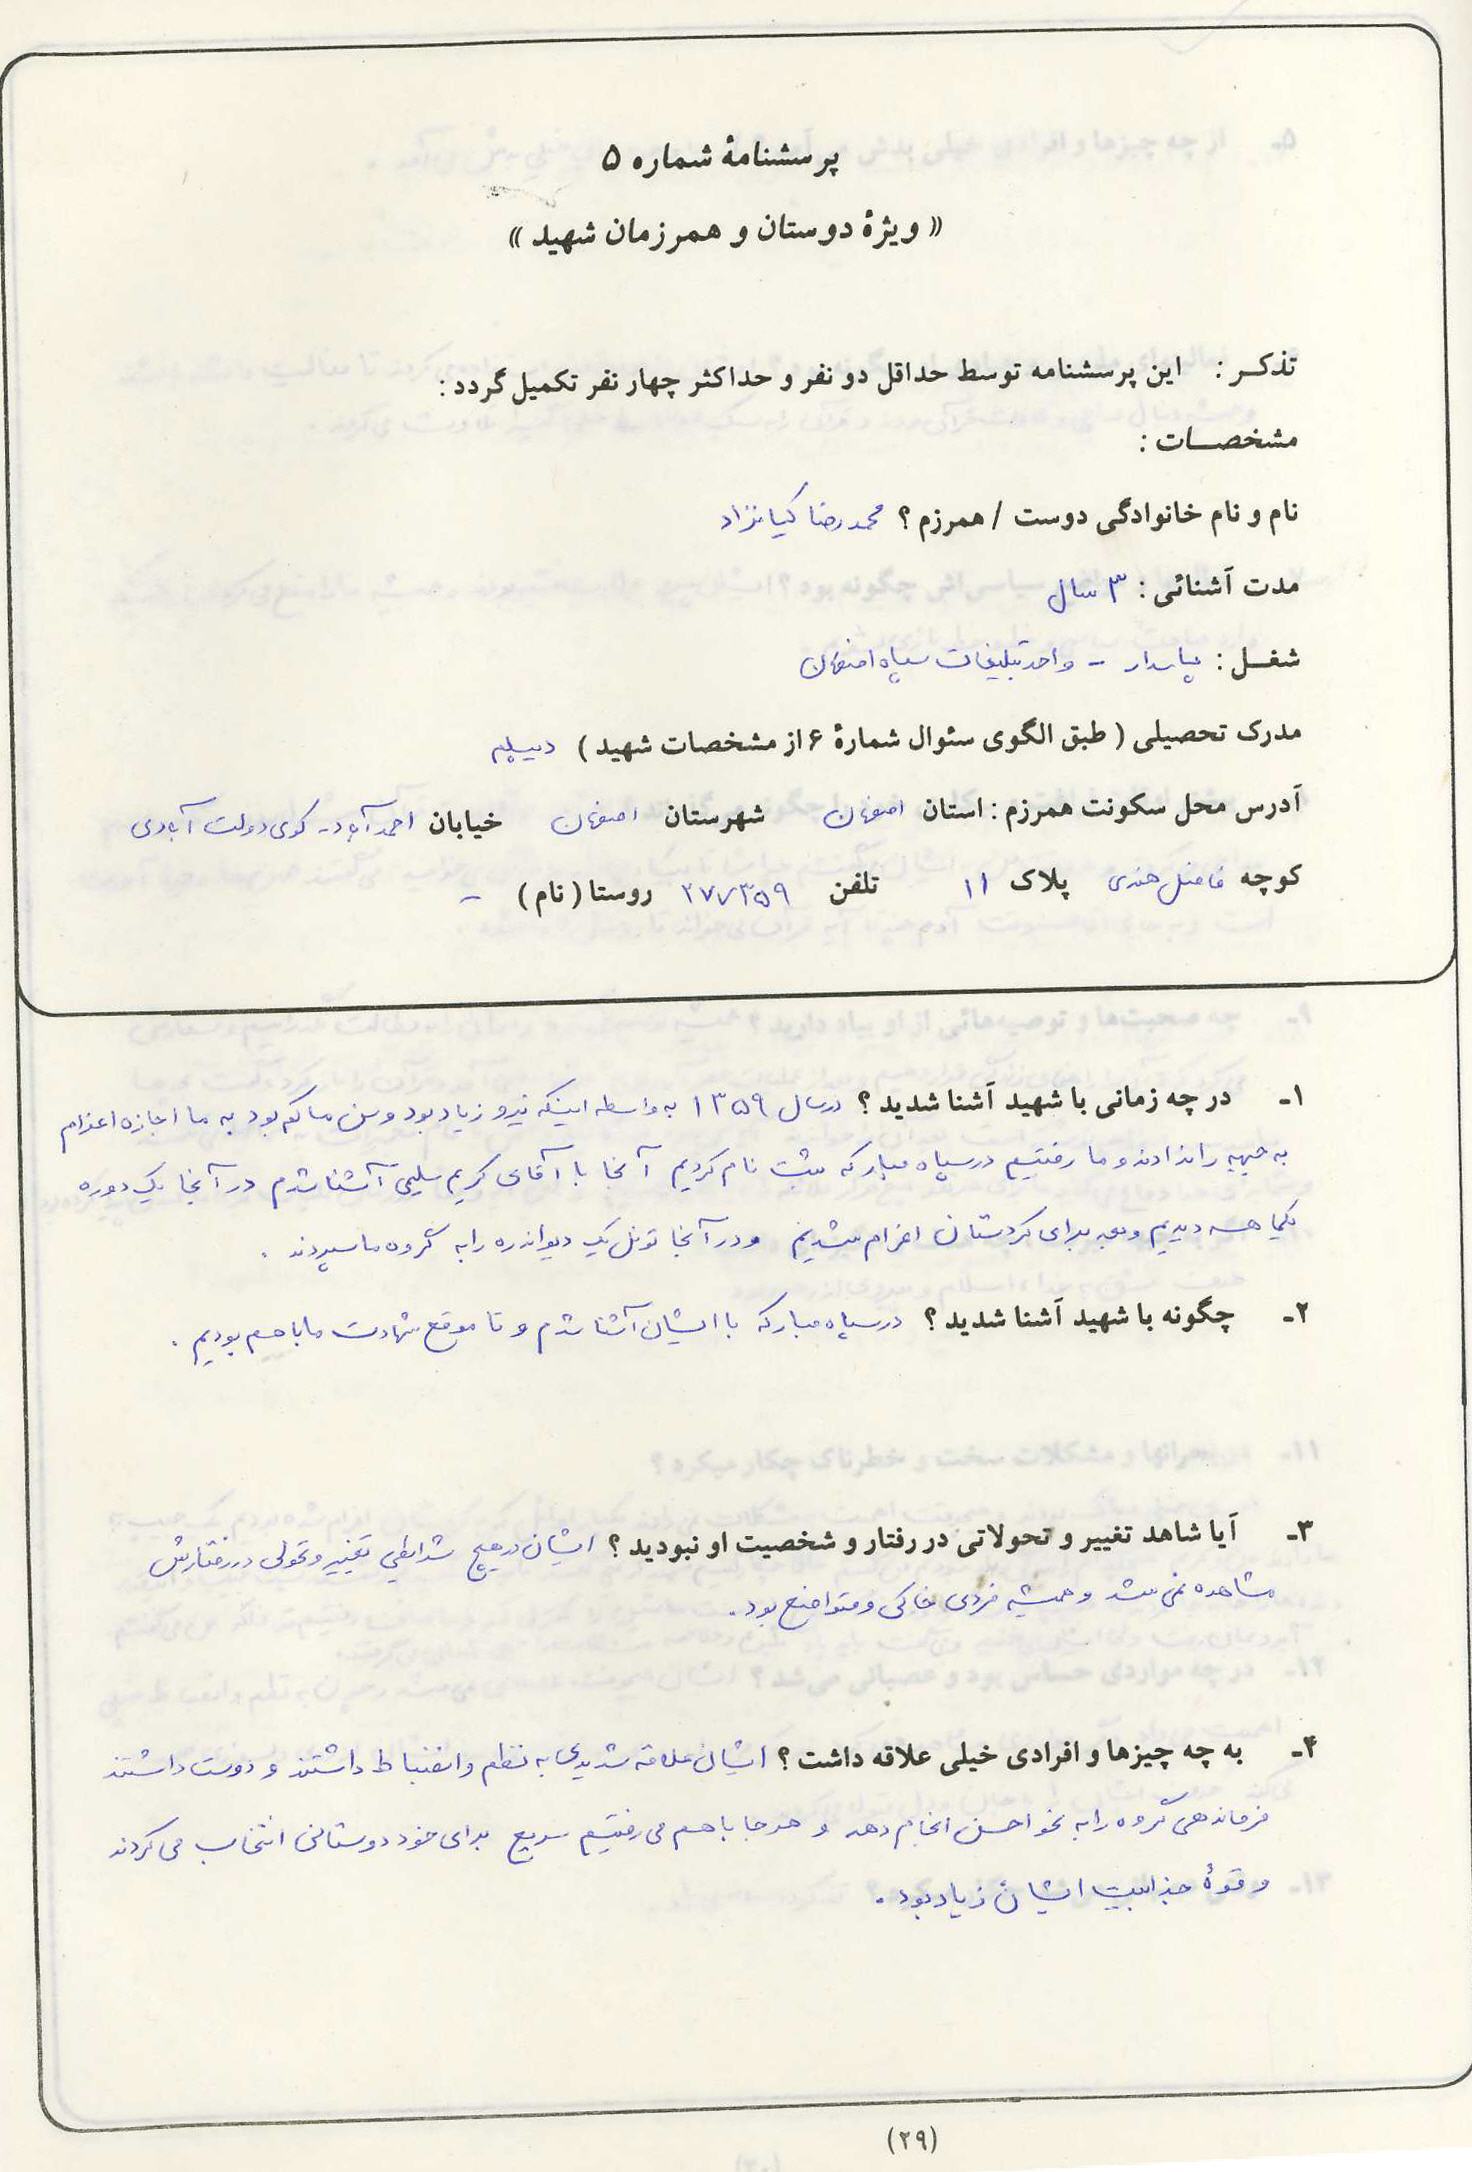 پرسشنامهٔ شماره ۵
« ویژهٔ دوستان و همرزمان شهید »
تذکـر : این پرسشنامه توسط حداقل دو نفر و حداکثر چهار نفر تکمیل گردد :
مشخصـــات :
نام و نام خانوادگی دوست / همرزم ؟ محمدرضا کیانژاد
مدت آشنائی : ۳ سال
شغـــل : پاسدار - واحد تبلیغات سپاه اصفهان
مدرک تحصیلی ( طبق الگوی سئوال شمارهٔ ۶ از مشخصات شهید ) دیپلم
آدرس محل سکونت همرزم : استان اصفهان شهرستان اصفهان خیابان احمدآباد - کوی دولت آبادی
کوچه فاضل هندی پلاک ۱۱ تلفن روستا ( نام ) -
۱- در چه زمانی با شهید آشنا شدید ؟ درسال ۱۳۵۹ به واسطه اینکه نیرو زیاد بود وسن ما کم بود به ما اجازه اعزام
به جبهه را ندادند و ما رفتیم درسپاه مبارکه ثبت نام کردیم آنجا با آقای کریم سلیمی آشنا شدم در آنجا یک دوره
یکماهه دیدیم وبعد برای کردستان اعزام شدیم ودر آنجا تونل یک دیواندره را به گروه ما سپردند .
۲- چگونه با شهید آشنا شدید ؟ درسپاه مبارکه با ایشان آشنا شدم و تا موقع شهادت ما با هم بودیم .
۳- آیا شاهد تغییر و تحولاتی در رفتار و شخصیت او نبودید ؟ ایشان در هیچ شرایطی تغییر وتحولی در رفتارش
مشاهده نمی شد و همیشه فردی خاکی و متواضع بود .
۴- به چه چیزها و افرادی خیلی علاقه داشت ؟ ایشان علاقه شدیدی به نظم وانضباط داشتند و دوست داشتند
فرماندهی گروه را به نحو احسن انجام دهد و هرجا با هم می رفتیم سریع برای خود دوستانی انتخاب می کردند
و قوهٔ جذابیت ایشان زیاد بود .
(۲۹)